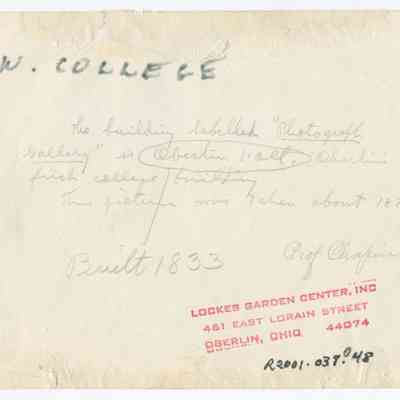 W. COLLEGE
The building labelled "Photograph
Gallery" is Oberlin Hall, Oberlin's
first college building
This picture was taken about 18
Built 1833
Prof Chapin
LOCKES GARDEN CENTER, INC
461 EAST LORAIN STREET
OBERLIN, OHIO 44074
R2001.037.48